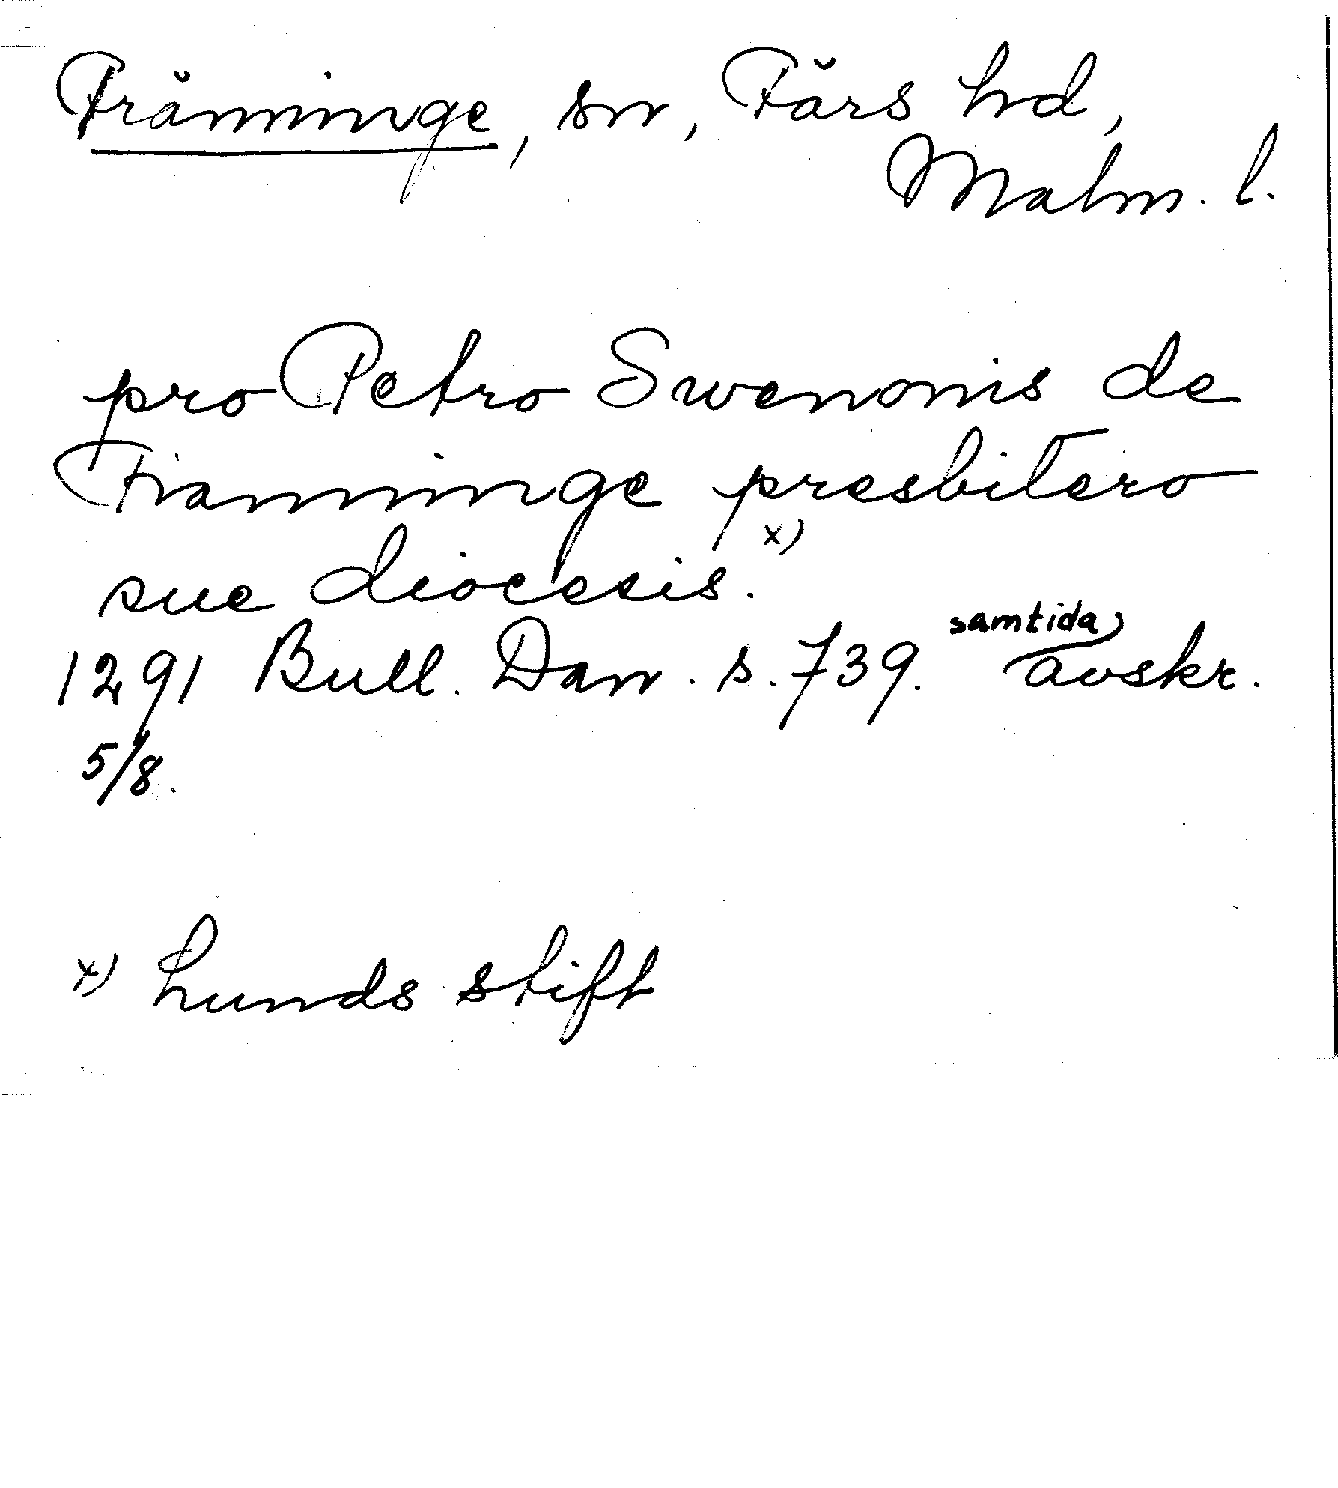 Fränninge, sn, Färs hd,
Malm. l.
pro Petro Swenonis de
Franninge presbitero
sue diocesis. x)
1291 Bull. Dan. s. 739. samtida avskr.
5/8.
x) Lunds stift